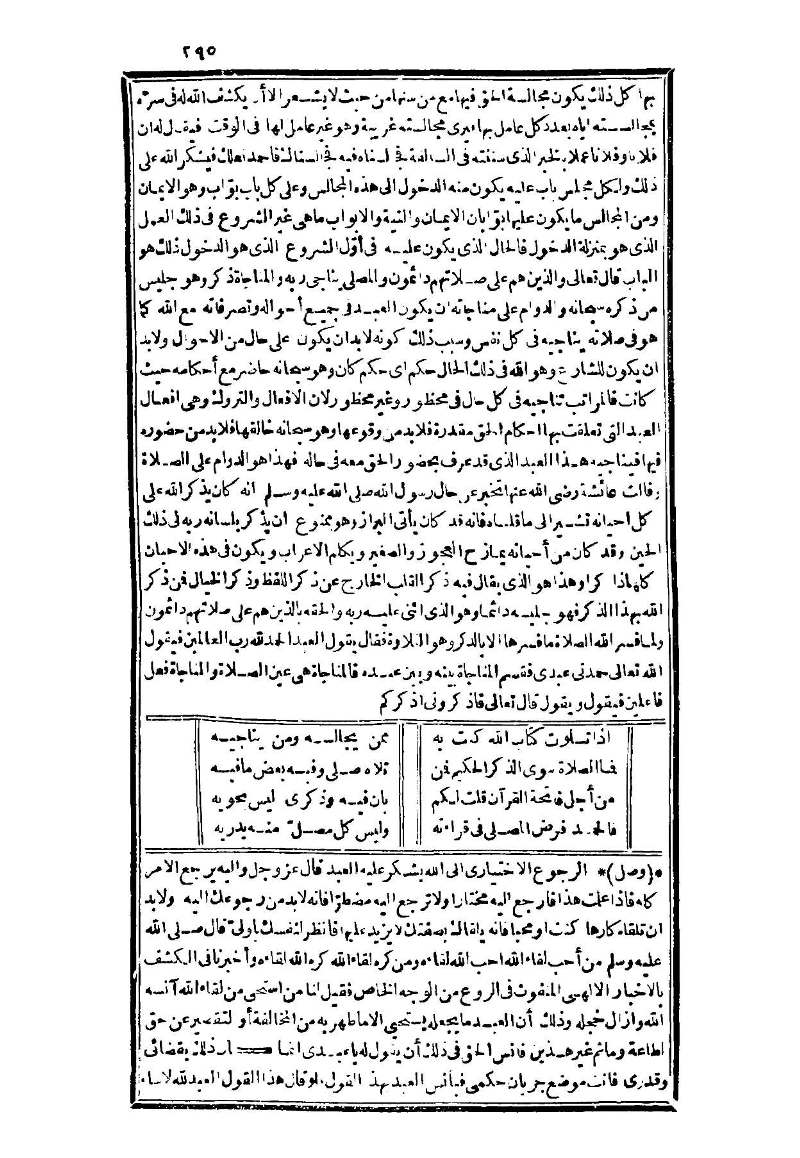 ٢٩٥
بها كل ذلك يكون مجالسة الحق فيها مع من سنها من حيث لا يشعر الا أن يكشف الله له فى سره
بمجالسته اياه بعدد كل عامل بها فيرى مجالسته غريبة وهو غير عامل لها فى الوقت فيقال له ان
فلانا وفلانا عملا بالخير الذى سننته فى فيه فيشكر الله على
ذلك ولكل مجلس باب عليه يكون منه الدخول الى هذه المجالس وعلى كل باب بواب وهو الايمان
ومن المجالس ما يكون عليها بوابان الايمان والنية والابواب ما هى غير الشروع فى ذلك العمل
الذى هو بمنزلة الدخول فالحال الذى يكون عليه فى أول الشروع الذى هو الدخول ذلك هو
الباب قال تعالى والذين هم على صلاتهم دائمون والمصلى يناجى ربه والمناجاة ذكر وهو جليس
من ذكره سبحانه والدوام على مناجاته ان يكون العبد فى جميع أحواله وتصرفاته مع الله كما
هو فى صلاته يناجيه فى كل نفس وسبب ذلك كونه لا بد ان يكون على حال من الاحوال ولا بد
ان يكون للشارع وهو الله فى ذلك الحال حكم اى حكم كان وهو سبحانه حاضر مع أحكامه حيث
كانت فالمراتب تناجيه فى كل حال فى محظور وغير محظور لان الافعال والتروك وهى افعال
العبد التى تعلقت بها احكام الحق مقدرة فلا بد من وقوعها وهو سبحانه خالقها فلا بد من حضوره
فيها فيناجيه هذا العبد الذى قد عرف بحضور الحق معه فى حاله فهذا هو الدوام على الصلاة
وقالت عائشة رضى الله عنها تخبر عن حال رسول الله صلى الله عليه وسلم انه كان يذكر الله على
كل احيانه تشير الى ما قلناه فانه قد كان يأتى البراز وهو ممنوع ان يذكر بلسانه ربه فى ذلك
الحين وقد كان من أحيانه يمازح العجوز والصغير ويكلم الاعراب ويكون فى هذه الاحيان
كلها ذاكرا وهذا هو الذى يقال فيه ذكر القلب الخارج عن ذكر اللفظ وذكر الخيال فمن ذكر
الله بهذا الذكر فهو جليسه دائما وهو الذى اثنى عليه ربه والحقه بالذين هم على صلاتهم دائمون
ولما فسر الله الصلاة ما فسرها الا بالذكر وهو التلاوة فقال يقول العبد الحمد لله رب العالمين فيقول
الله تعالى حمدنى عبدى فقسم المناجاة بينه وبين عبده فالمناجاة هى عين الصلاة والمناجاة فعل
فاعلين فيقول ويقول قال تعالى فاذكرونى اذكركم
اذا تلوت كتاب الله كنت به ممن يجالسه ومن يناجيه
فما الصلاة سوى الذكر الحكيم فمن تلاه صلى وفيه بعض ما فيه
من أجل فاتحة القرآن قلت لكم بان فيه وذكرى ليس يحويه
فالحمد فرض المصلى فى قراءته وليس كل مصل منه يدريه
*(وصل)* الرجوع الاختيارى الى الله يشكر عليه العبد قال عز وجل واليه يرجع الامر
كله فاذا علمت هذا فارجع اليه مختارا ولا ترجع اليه مضطرا فانه لا بد من رجوعك اليه ولا بد
ان تلقاه كارها كنت او محبا فانه يلقاك بصفتك لا يزيد عليها فانظر لنفسك يا ولى قال صلى الله
عليه وسلم من أحب لقاء الله احب الله لقاءه ومن كره لقاء الله كره الله لقاءه وأخبرنا فى الكشف
بالاخبار الالهى المنفوث فى الروع من الوجه الخاص فقيل لنا من استحى من لقاء الله آنسه
الله وازال خجله وذلك أن العبد ما يجعله يستحيى الا ما ظهر به من المخالفة أو لتقصير عن حق
اطاعة وما ثم غير هذين فانس الحق فى ذلك أن يقول له يا عبدى انما كان ذلك بقضائى
وقدرى فانت موضع جريان حكمى فيأنس العبد بهذا القول فلو قال هذا القول العبد لله لاساء